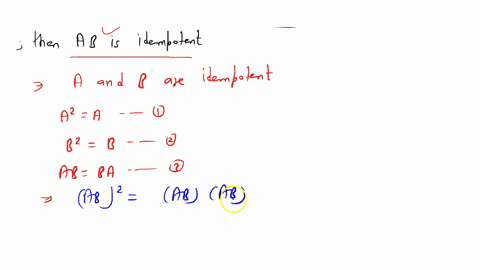 ; then AB is idempotent
⇒ A and B are idempotent
A² = A --- ①
B² = B --- ②
AB = BA --- ③
⇒ (AB)² = (AB) (AB)